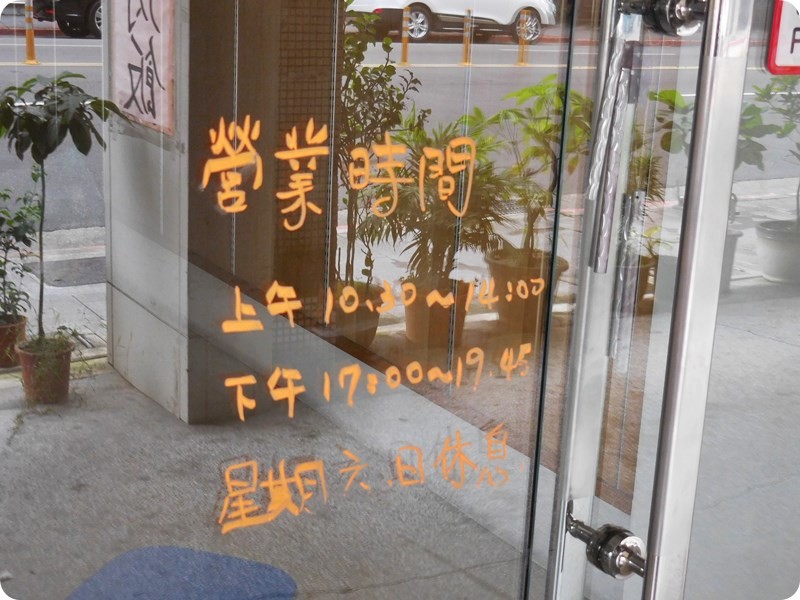 飯
營業時間
上午 10:30～14:00
下午 17:00～19:45
星期六.日休息